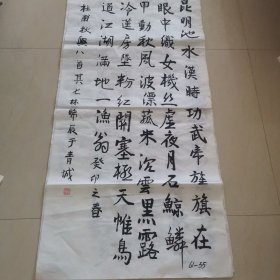 昆明池水漢時功武帝旌旗在
眼中織女機絲虛夜月石鯨鱗
甲動秋風波漂菰米沉雲黑露
冷蓮房墜粉紅關塞極天惟鳥
道江湖滿地一漁翁 癸卯之春
杜甫秋興八首其七 林于青城